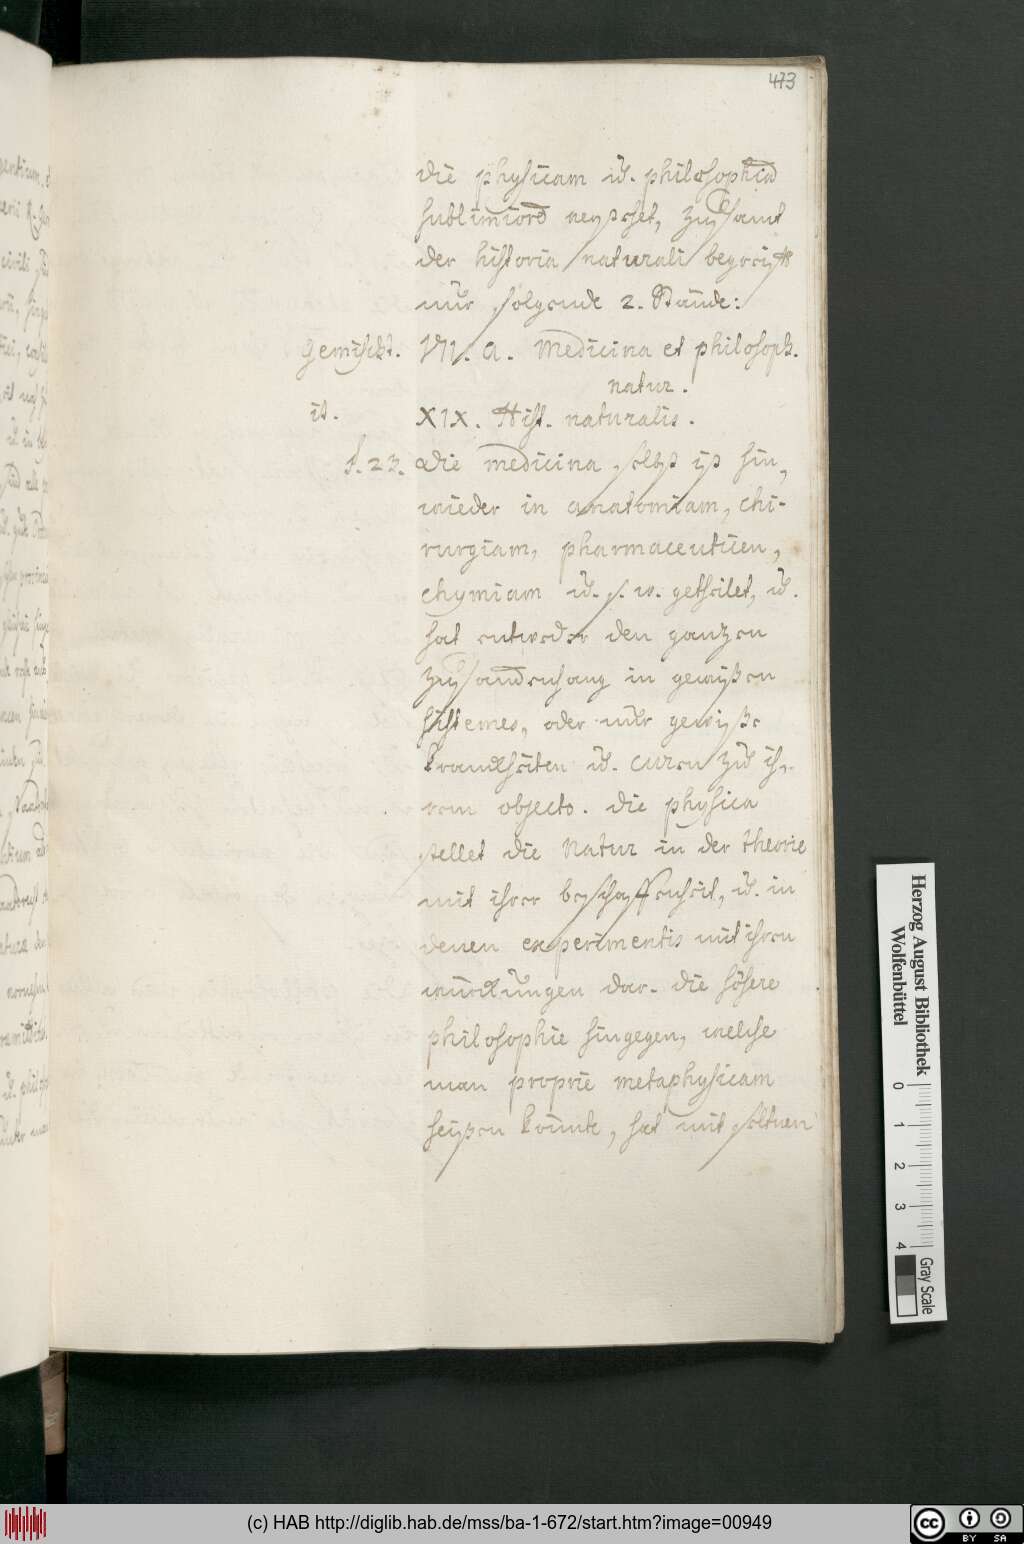 473
die physicam u. philosophia
sublimiore heyschet, zusamt
der historia naturali begreifft
nur folgende 2. Stände:
Gemischt. VII. a. Medicina et philosoph.
natur.
it. XIX. Hist. naturalis.
§. 23. Die medicina selbst ist hin,
wieder in anatomiam, chi-
rurgiam, pharmaceuticen,
chymiam u. s. w. getheilet, u.
hat entweder den ganzen
zusammenhang in gewißen
sistemes, oder nur gewiße
Kranckheiten u. curen zu ih,
rem objecto. Die physica
stellet die Natur in der theorie
mit ihrer beschaffenheit, u. in
denen experimentis mit ihren
würckungen dar. Die höhere
philosophie hingegen, welche
man proprie metaphysicam
heißen könnte, hat mit seltnen
Herzog August Bibliothek
Wolfenbüttel
0 1 2 3 4
Gray Scale
(c) HAB http://diglib.hab.de/mss/ba-1-672/start.htm?image=00949
cc BY SA